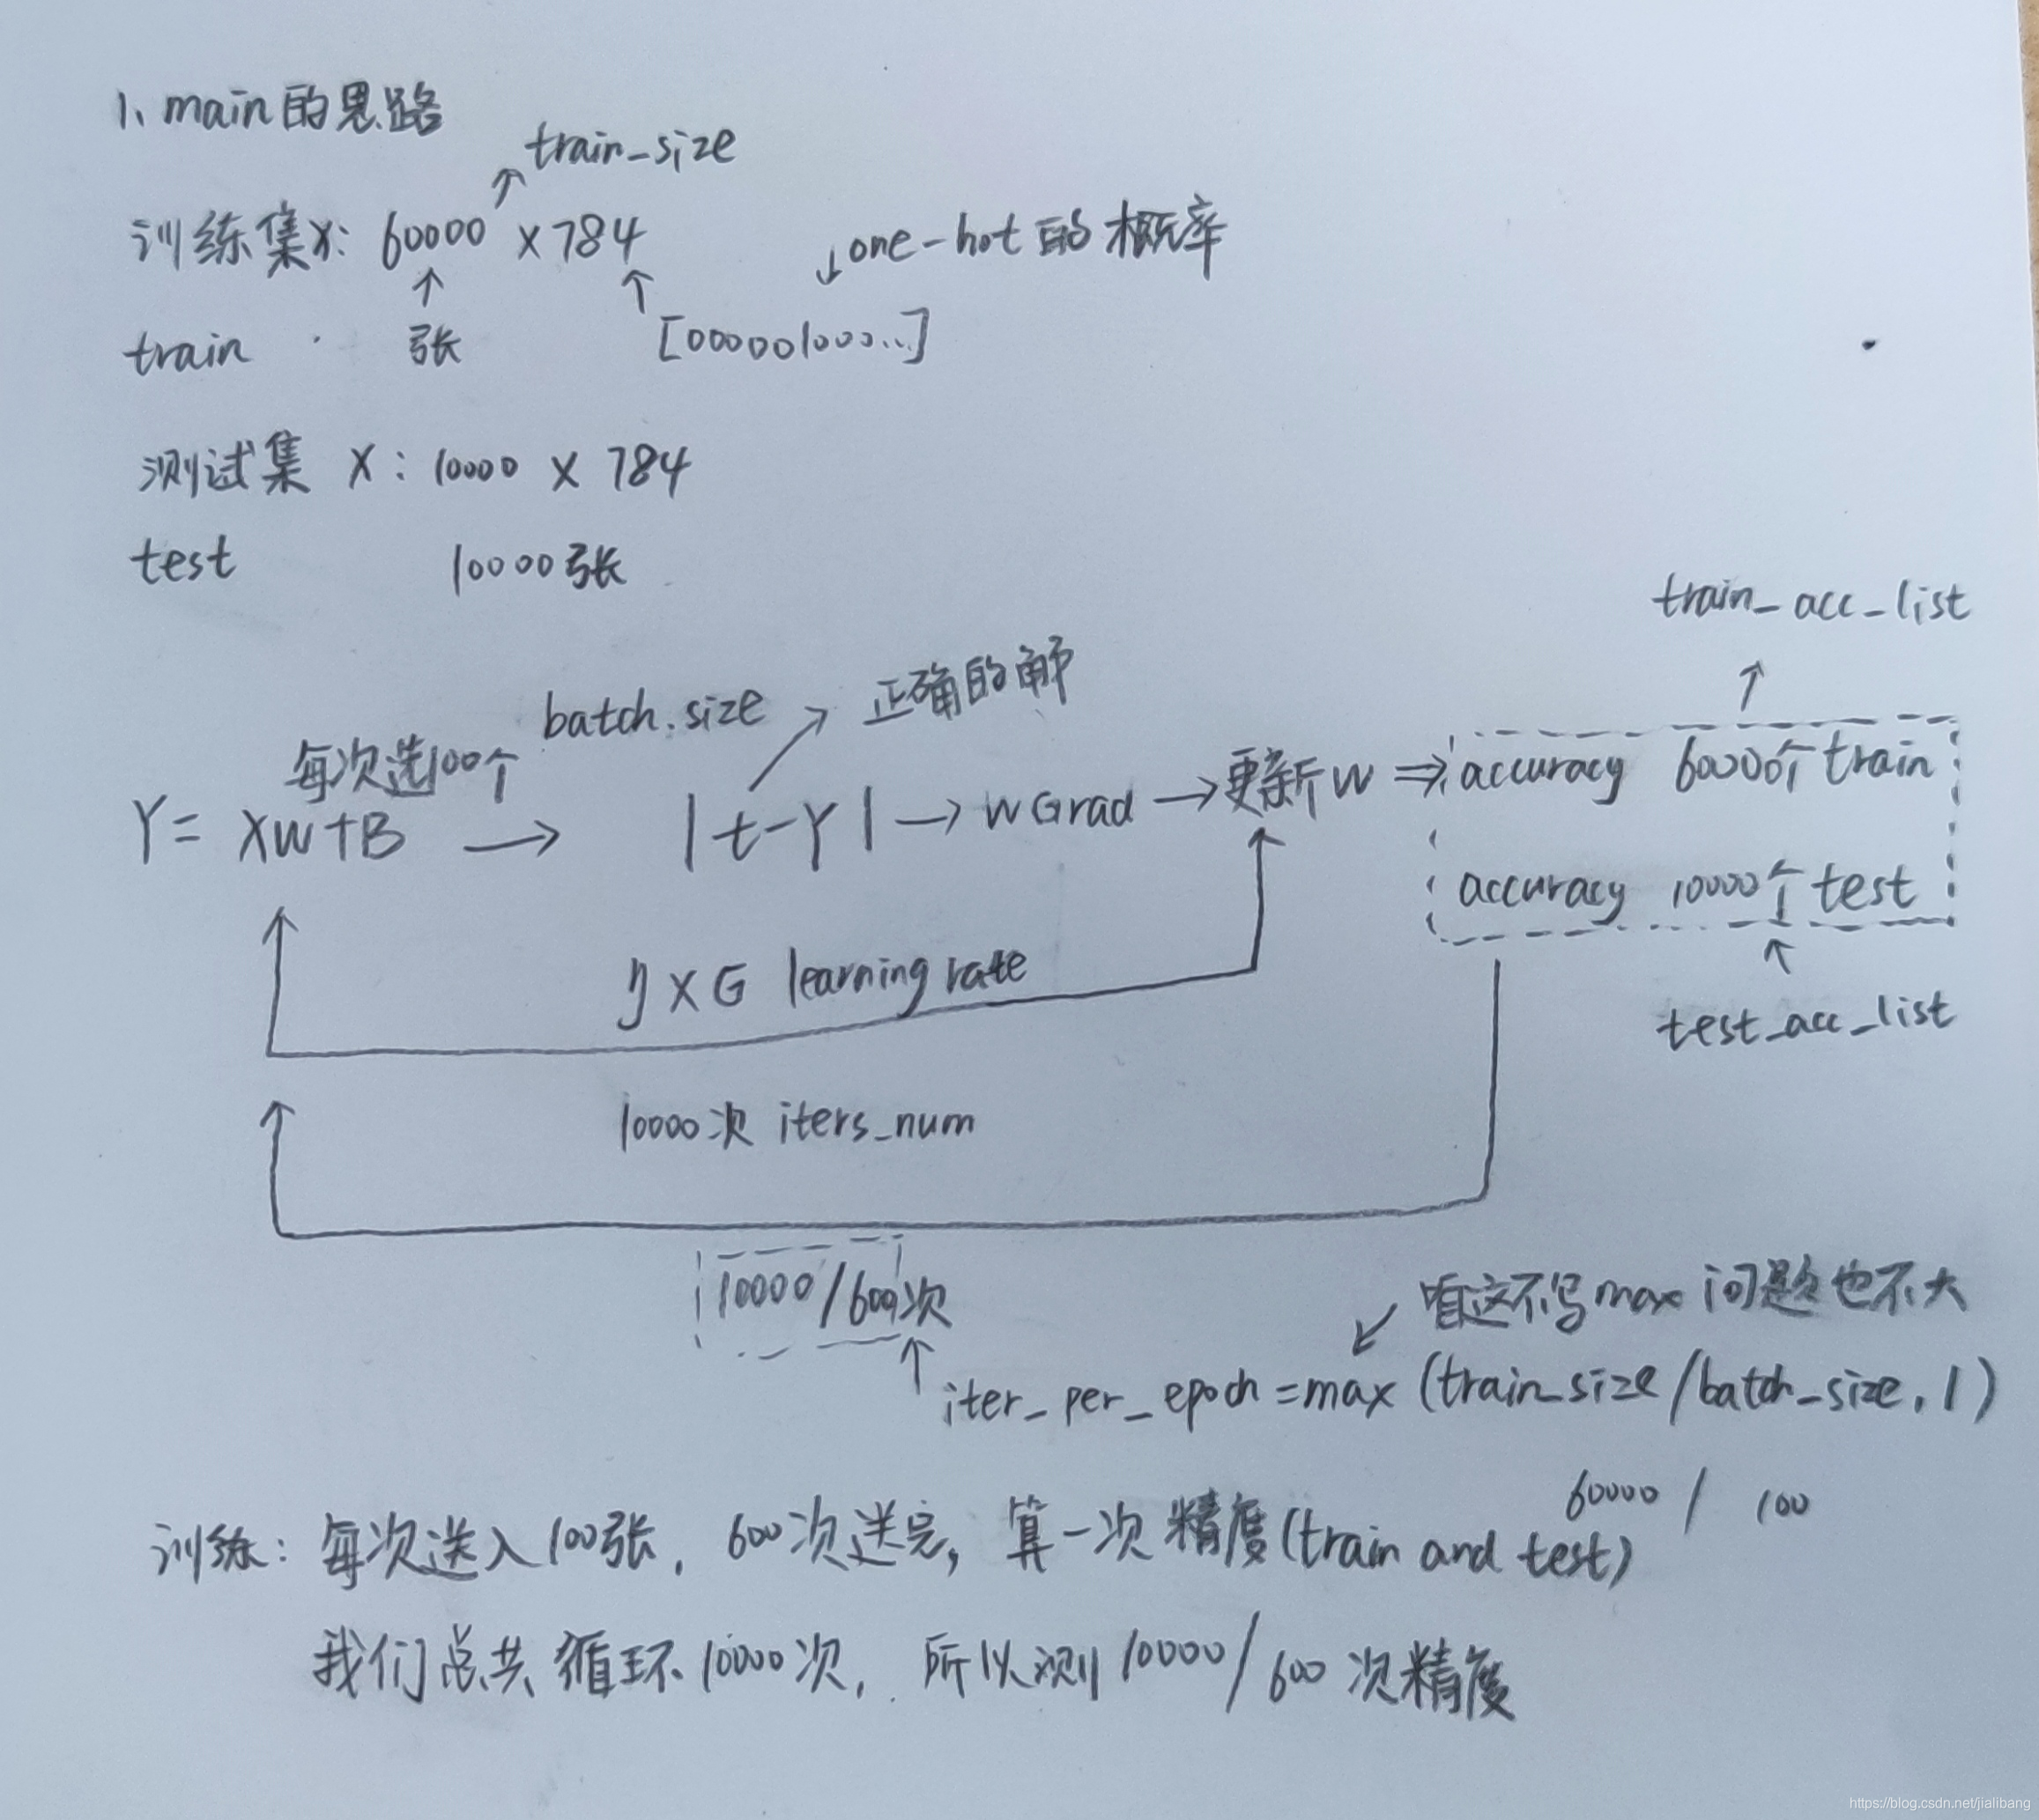 1、main的思路
train_size
训练集X: 60000 × 784
one-hot的概率
train 张 [000001000...]
测试集 X: 10000 × 784
test 10000张
train_acc_list
每次选100个 batch.size 正确的解
Y = XW+B → |t-Y| → W Grad → 更新W ⇒ accuracy 60000个 train
accuracy 10000个 test
η × G learning rate
test_acc_list
10000次 iters_num
10000/600次
咱这不写max问题也不大
iter_per_epoch = max (train_size/batch_size, 1)
60000 / 100
训练: 每次送入100张, 600次送完, 算一次精度(train and test)
我们总共循环10000次, 所以测10000/600次精度
https://blog.csdn.net/jialibang